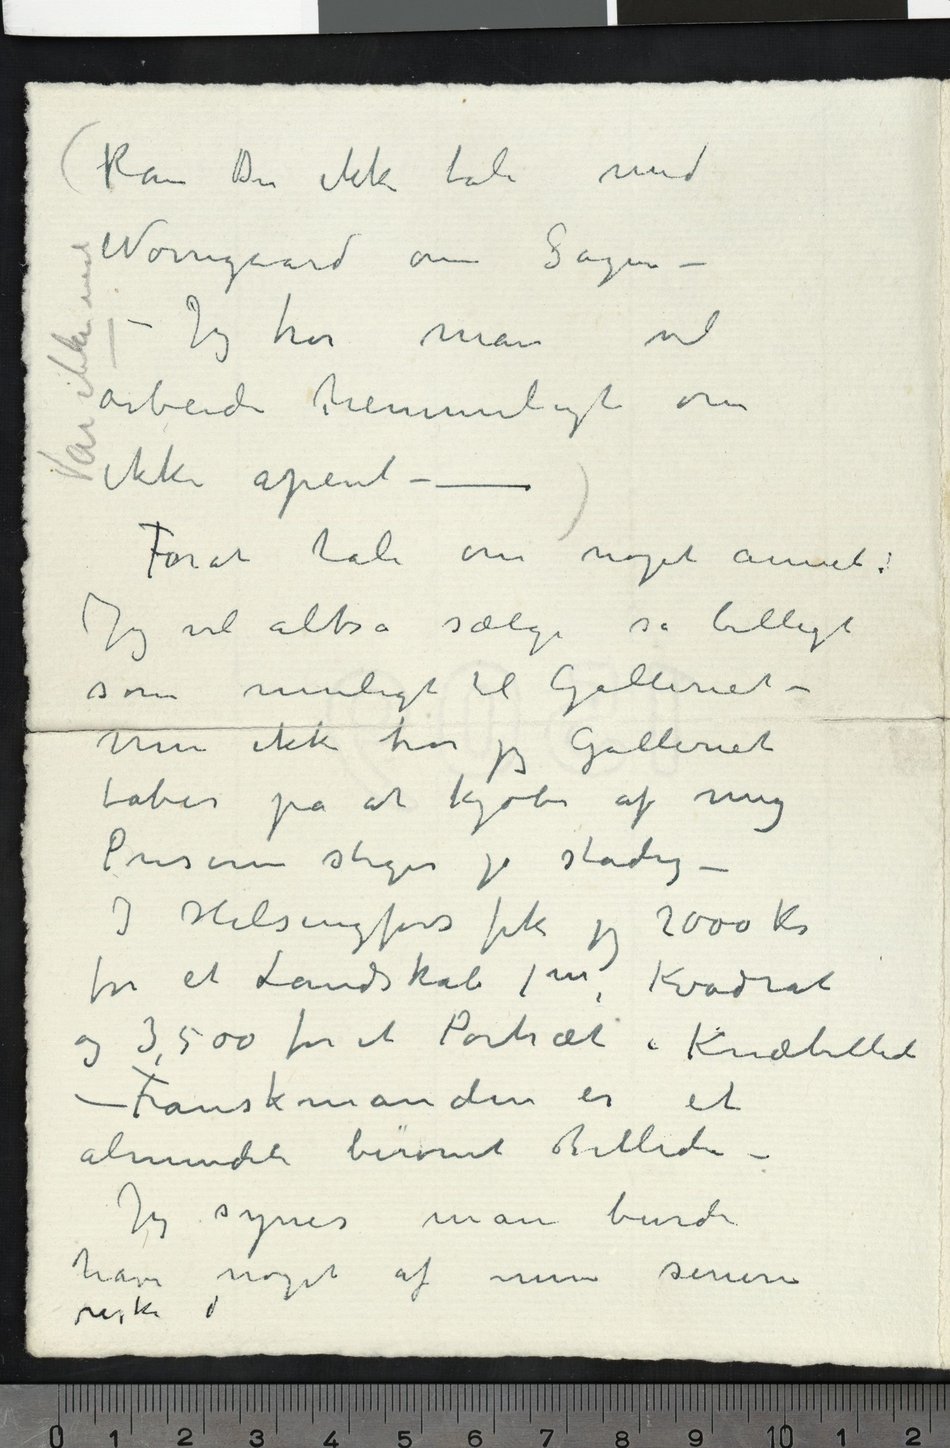 (Kan Du ikke tale med
Nørregaard om Sagen –
– Jeg tror man vil
arbeide hemmeligt om
ikke åpent – —)
Var ikke med
Forat tale om noget annet:
Jeg vil altså sælge så billigt
som muligt til Galleriet –
men ikke tror jeg Galleriet
taber på at kjøbe af mig
Priserne stiger jo stadig –
I Helsingfors fik jeg 2000 Kr
for et Landskab 1 m, Kvadrat
og 3,500 for et Portræt i Knæbilled
– Franskmanden er et
almindeli berømt Billede –
Jeg synes man burde
have noget af min senere
0 1 2 3 4 5 6 7 8 9 10 1 2